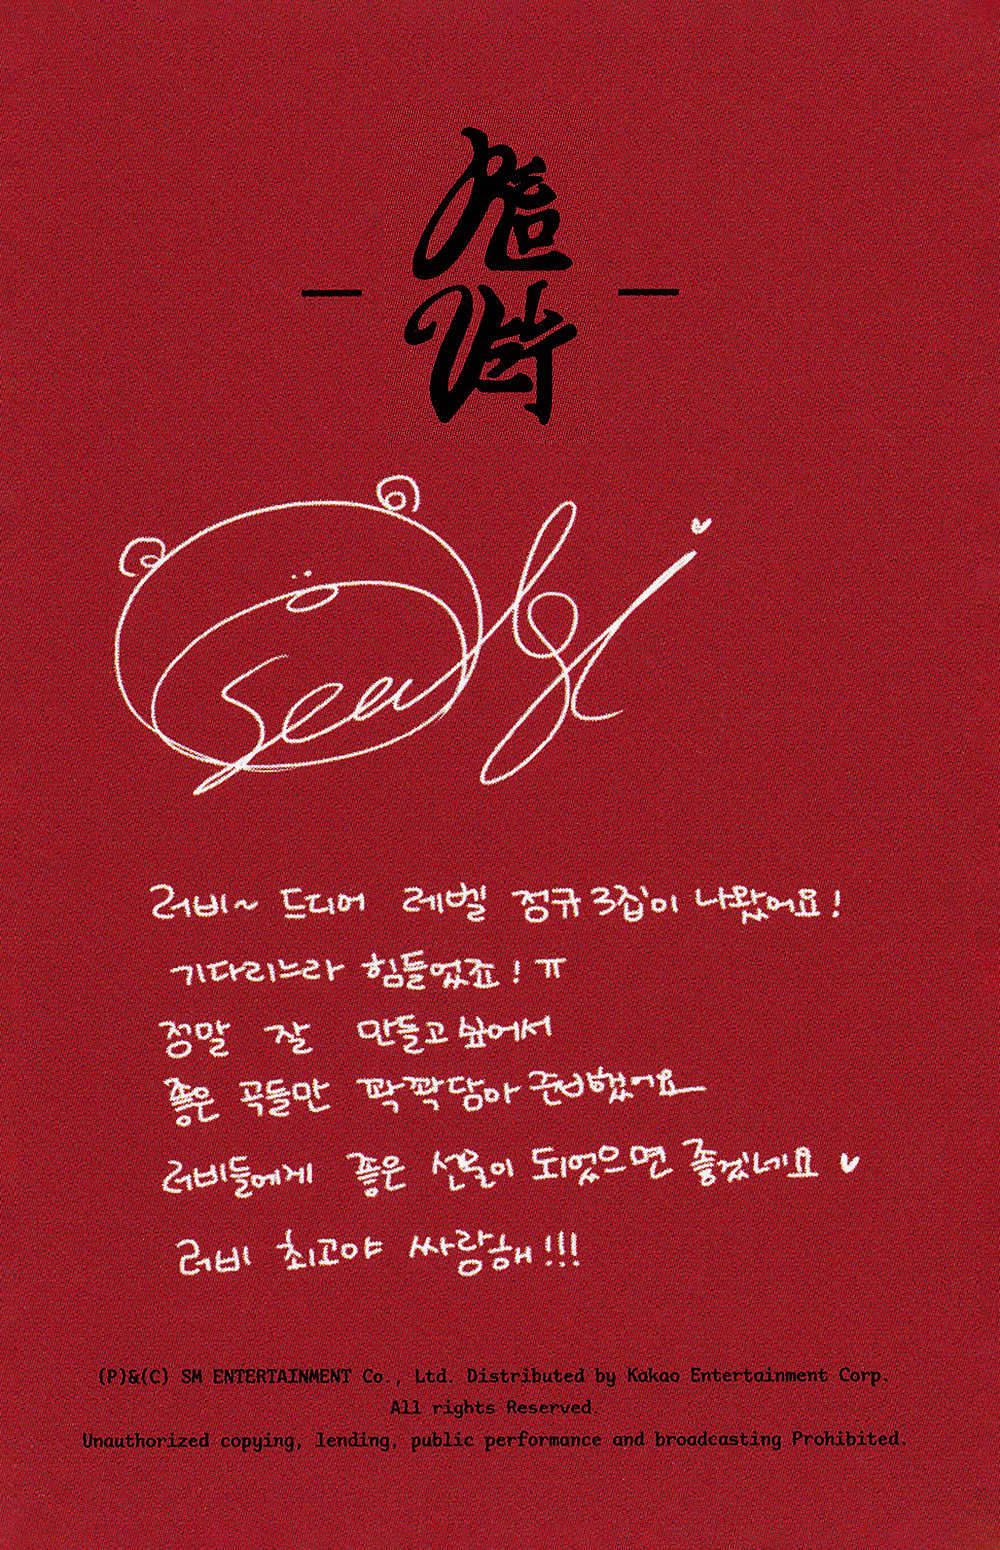 Seulgi
러비~ 드디어 레벨 정규 3집이 나왔어요!
기다리느라 힘들었죠! ㅠ
정말 잘 만들고 싶어서
좋은 곡들만 꽉꽉담아 준비했어요
러비들에게 좋은 선물이 되었으면 좋겠네요
러비 최고야 싸랑해!!!
(P)&(C) SM ENTERTAINMENT Co., Ltd. Distributed by Kakao Entertainment Corp.
All rights Reserved.
Unauthorized copying, lending, public performance and broadcasting Prohibited.